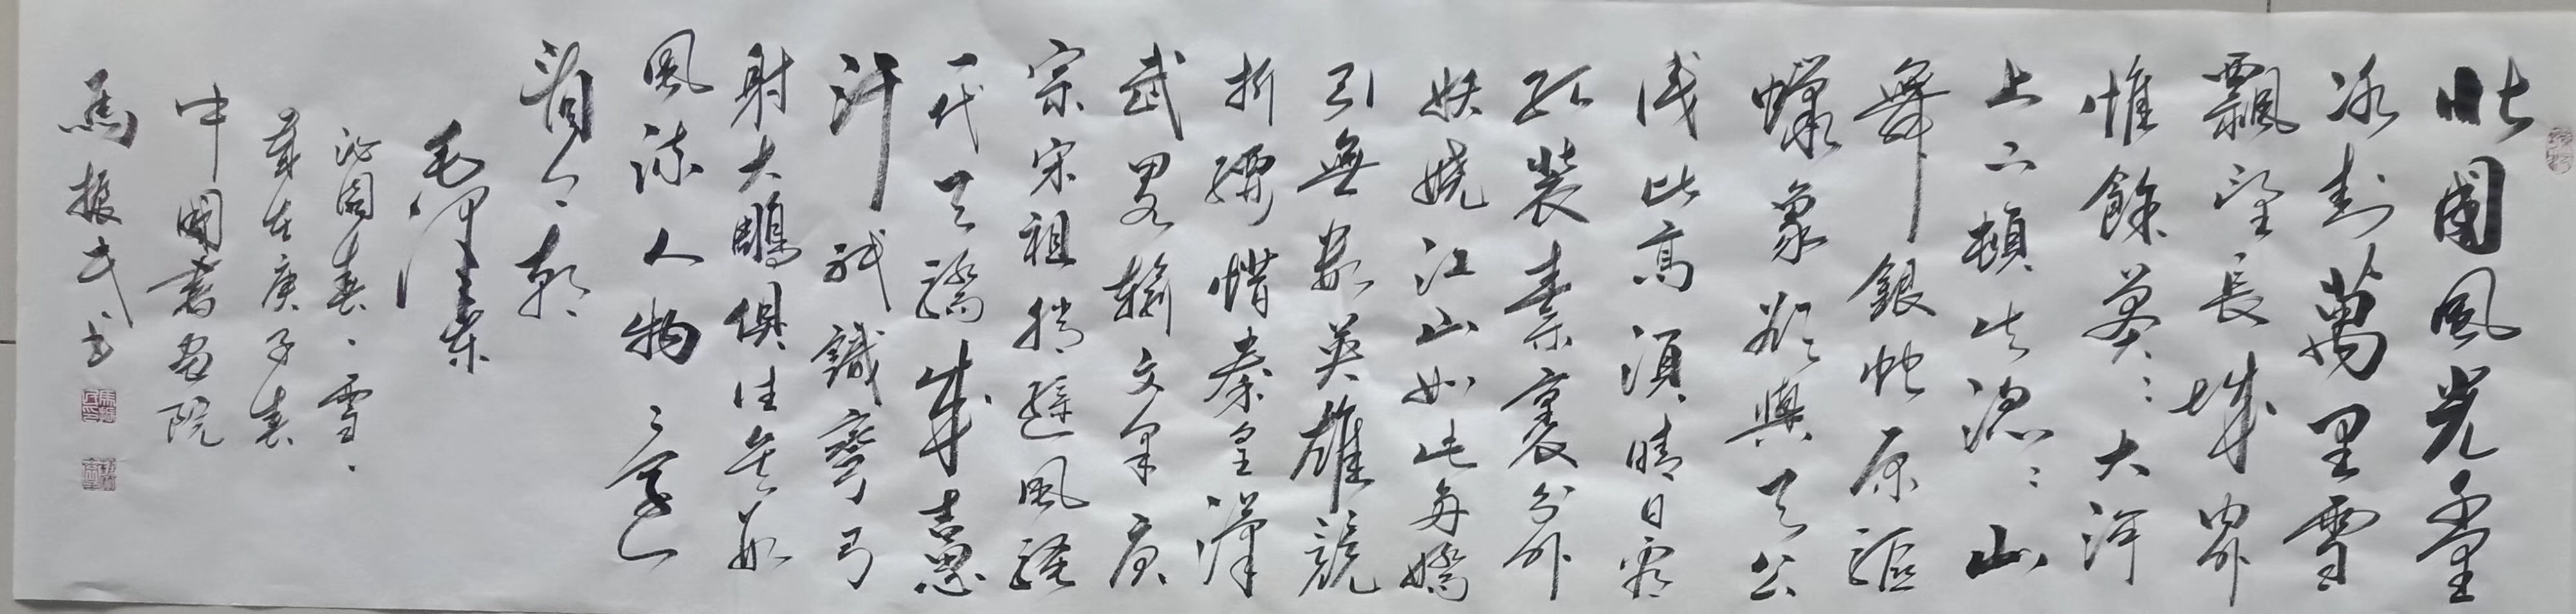 北國風光千里
冰封萬里雪
飄望長城內外
惟餘莽〻大河
上下頓失滔〻山
舞銀蛇原馳
蠟象欲與天公
試比高須晴日看
紅裝素裹分外
妖嬈江山如此多嬌
引無數英雄競
折腰惜秦皇漢
武略輸文采唐
宗宋祖稍遜風騷
一代天驕成吉思
汗祇識彎弓
射大鵰俱往矣數
風流人物還
看今朝
毛澤東
沁園春、雪、
歲在庚子春
中國書畫院
馬振民书